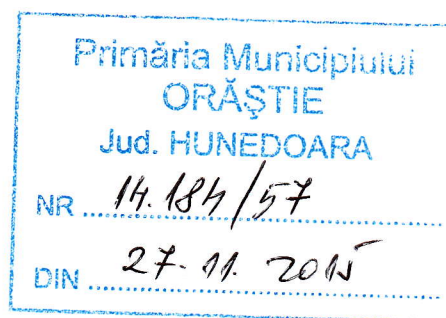 Primăria Municipiului
ORĂŞTIE
Jud. HUNEDOARA
NR 14.184/57
DIN 27.11.2015